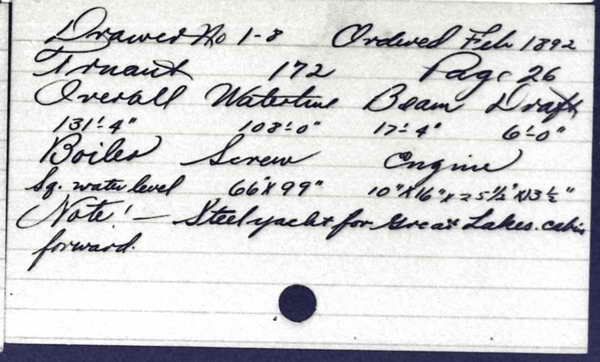 Drawer No 1-8 Ordered Feb 1892
Truant 172 Page 26
Overall Waterline Beam Draft
131'-4" 108'-0" 17'-4" 6'-0"
Boiler Screw Engine
Sq. water level 66"X99" 10"X16"x25½"X13½"
Note! - Steel yacht for Great Lakes. cabin
forward.